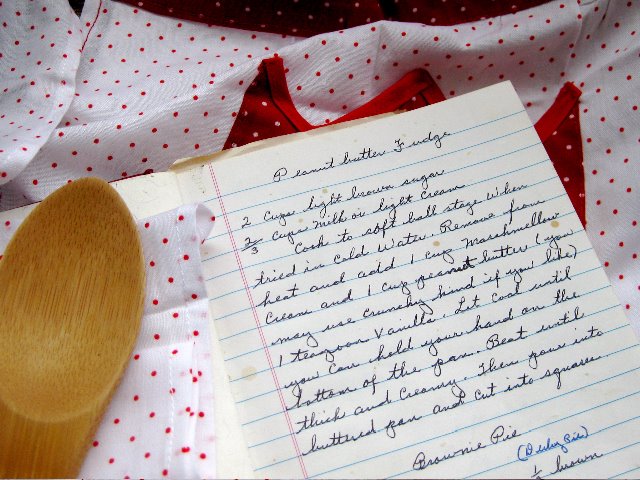 Peanut butter Fudge
2 cups light brown sugar
2/3 cups milk or light cream
Cook to soft ball stage when
tried in cold water. Remove from
heat and add 1 cup marshmellow
cream and 1 cup peanut butter (you
may use crunchy kind if you like)
1 teaspoon vanilla. Let cool until
you can hold your hand on the
bottom of the pan. Beat until
thick and creamy. Then pour into
buttered pan and cut into squares.
Brownie Pie
brown